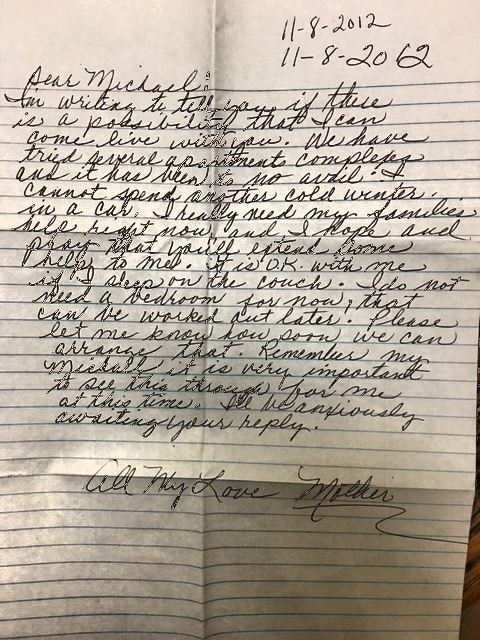 11-8-2012
11-8-2062
Dear Michael:
I'm writing to tell you, if there
is a possibility that I can
come live with you. We have
tried several apartment complexes
and it has been to no avail. I
cannot spend another cold winter.
in a car. I really need my families
help right now and I hope and
pray that you'll extend some
help to me. It is O.K. with me
if I sleep on the couch. I do not
need a bedroom for now, that
can be worked out later. Please
let me know how soon we can
arrange that. Remember my
Michael it is very important
to see this through for me
at this time. I'll be anxiously
awaiting your reply.
All My Love Mother